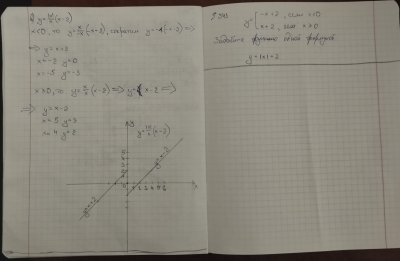 y=|x|/x (x-2)
x<0, то y=x/x (x-2), сократим y=-1(x-2) =>
=> y=x+2
x=-2 y=0
x=-5 y=-3
x>0, то y=x/x (x-2) => y= x-2 =>
=> y=x-2
x=5 y=3
x=4 y=2
y
y=|x|/x (x-2)
x
y { -x+2, если x<0
x+2, если x≥0
Задайте функцию одной формулой
y=|x|+2